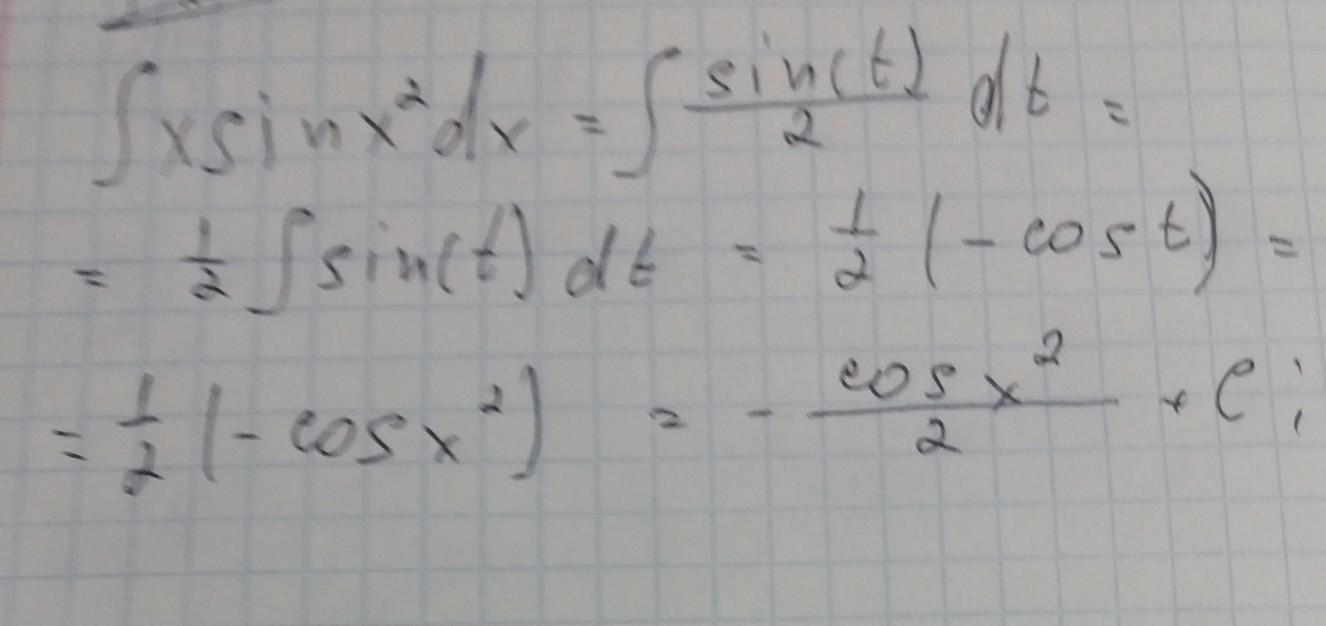 ∫xsinx²dx = ∫ sin(t)/2 dt =
= 1/2 ∫sin(t) dt = 1/2 (-cost) =
= 1/2 (-cosx²) = - cosx²/2 + C;